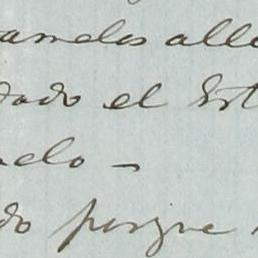 amelos all
dado el Est
elo —
do porque